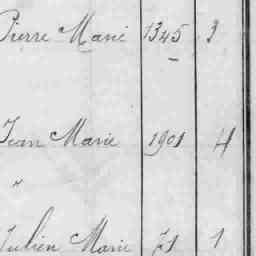 Pierre Marie 1345 3
Jean Marie 1901 4
"
Julien Marie 71 1